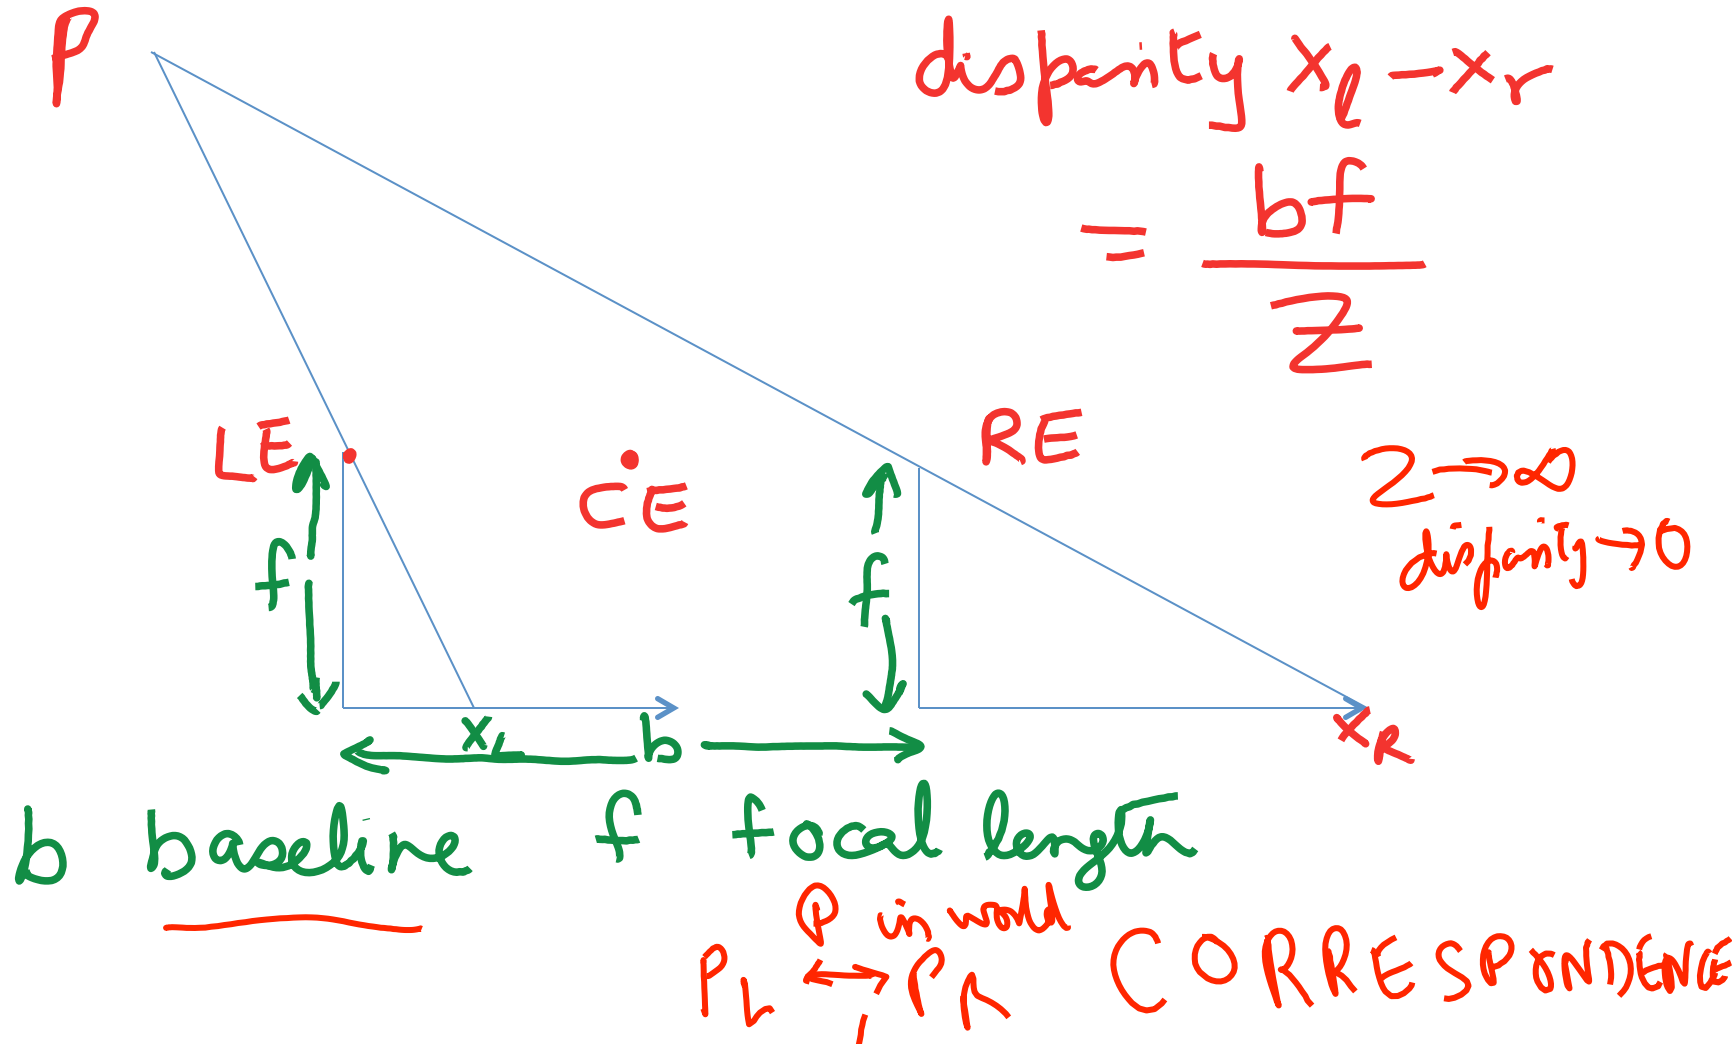 P
disparity x_l - x_r
= bf / Z
LE
CE
RE
Z → ∞
disparity → 0
f
f
x_L
b
x_R
b baseline f focal length
P in world
P_L ↔ P_R CORRESPONDENCE